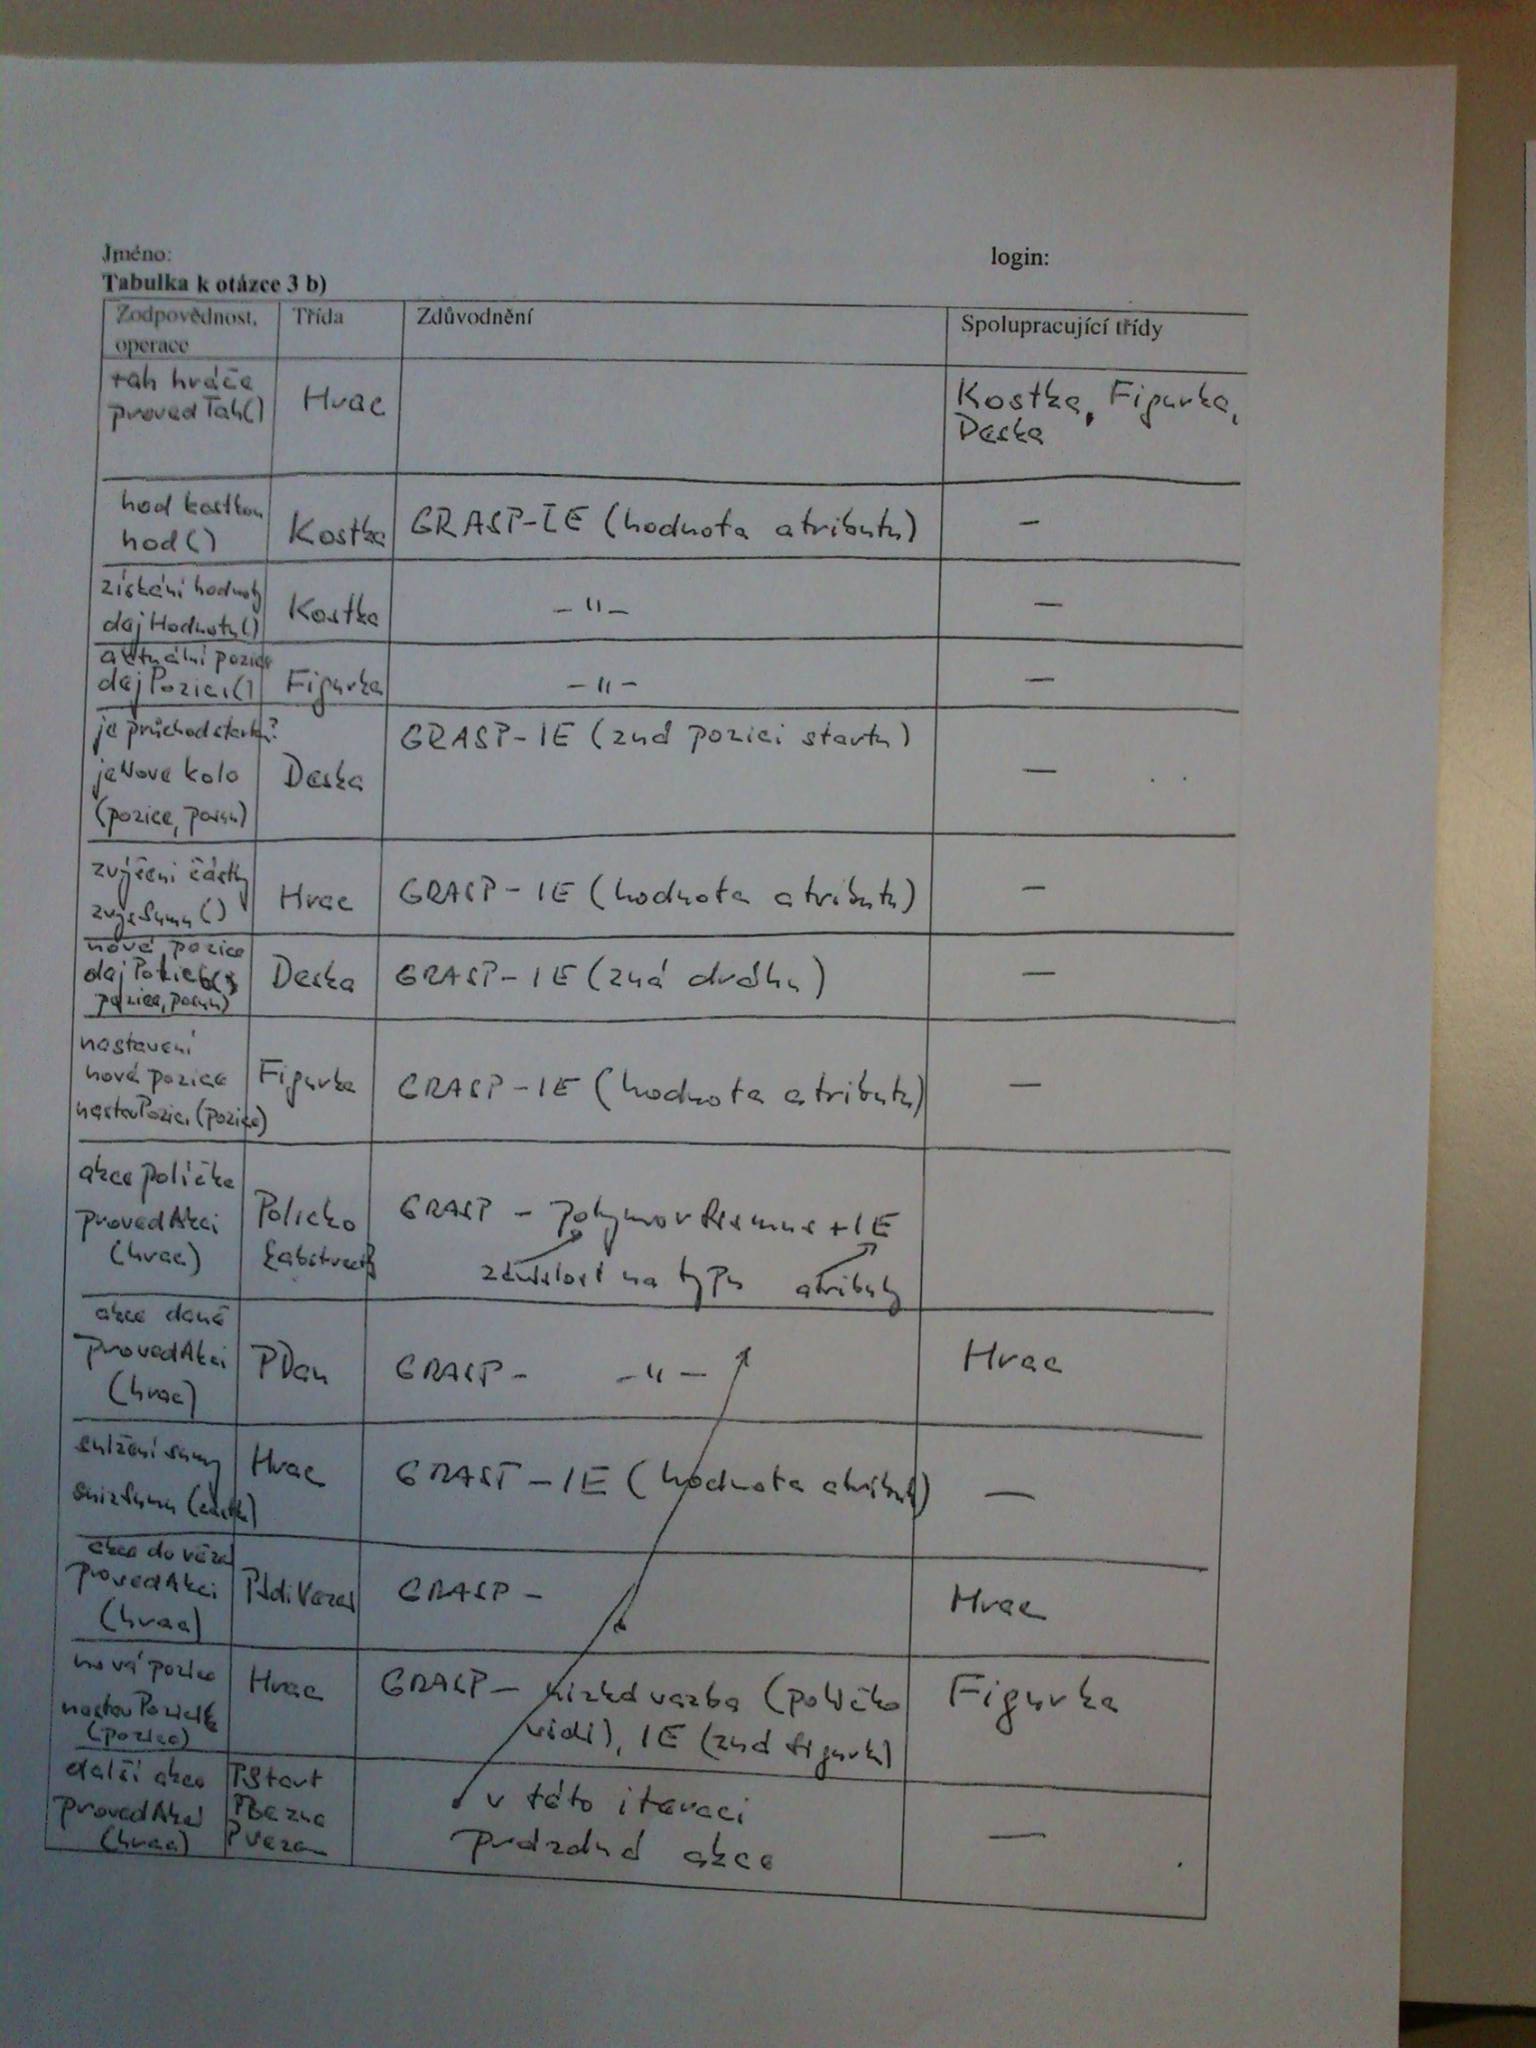 Jméno:
login:
Tabulka k otázce 3 b)
Zodpovědnost,
operace
Třída
Zdůvodnění
Spolupracující třídy
tah hráče
provedTah()
Hrac
Kostka, Figurka,
Deska
hod kostkou
hod()
Kostka
GRASP-IE (hodnota atributu)
—
získání hodnoty
dejHodnotu()
Kostka
-"-
—
aktuální pozice
dejPozici()
Figurka
-"-
—
je průchod startu?
jeNove kolo
(pozice, posun)
Deska
GRASP-IE (zná pozici startu)
—
zvýšení částky
zvysSumu()
Hrac
GRASP-IE (hodnota atributu)
—
nová pozice
pozice, posun)
Deska
GRASP-IE (zná dráhu)
—
nastavení
nové pozice
nastavPozici(pozice)
Figurka
GRASP-IE (hodnota atributu)
—
akce políčka
provedAkci
(hrac)
Policko
{abstract}
GRASP - polymorfismus + IE
závislost na typu atributy
akce daně
provedAkci
(hrac)
PDan
GRASP - -"-
Hrac
snížení sumy
snizSumu (částka)
Hrac
GRASP-IE (hodnota atributu)
—
akce do vězení
provedAkci
(hrac)
PJdiVezeni
GRASP -
Hrac
nová pozice
(pozice)
Hrac
GRASP- nízká vazba (políčko
vidí), IE (zná figurku)
Figurka
další akce
provedAkci
(hrac)
PStart
PBezne
PVezen
v této iteraci
prázdná akce
—